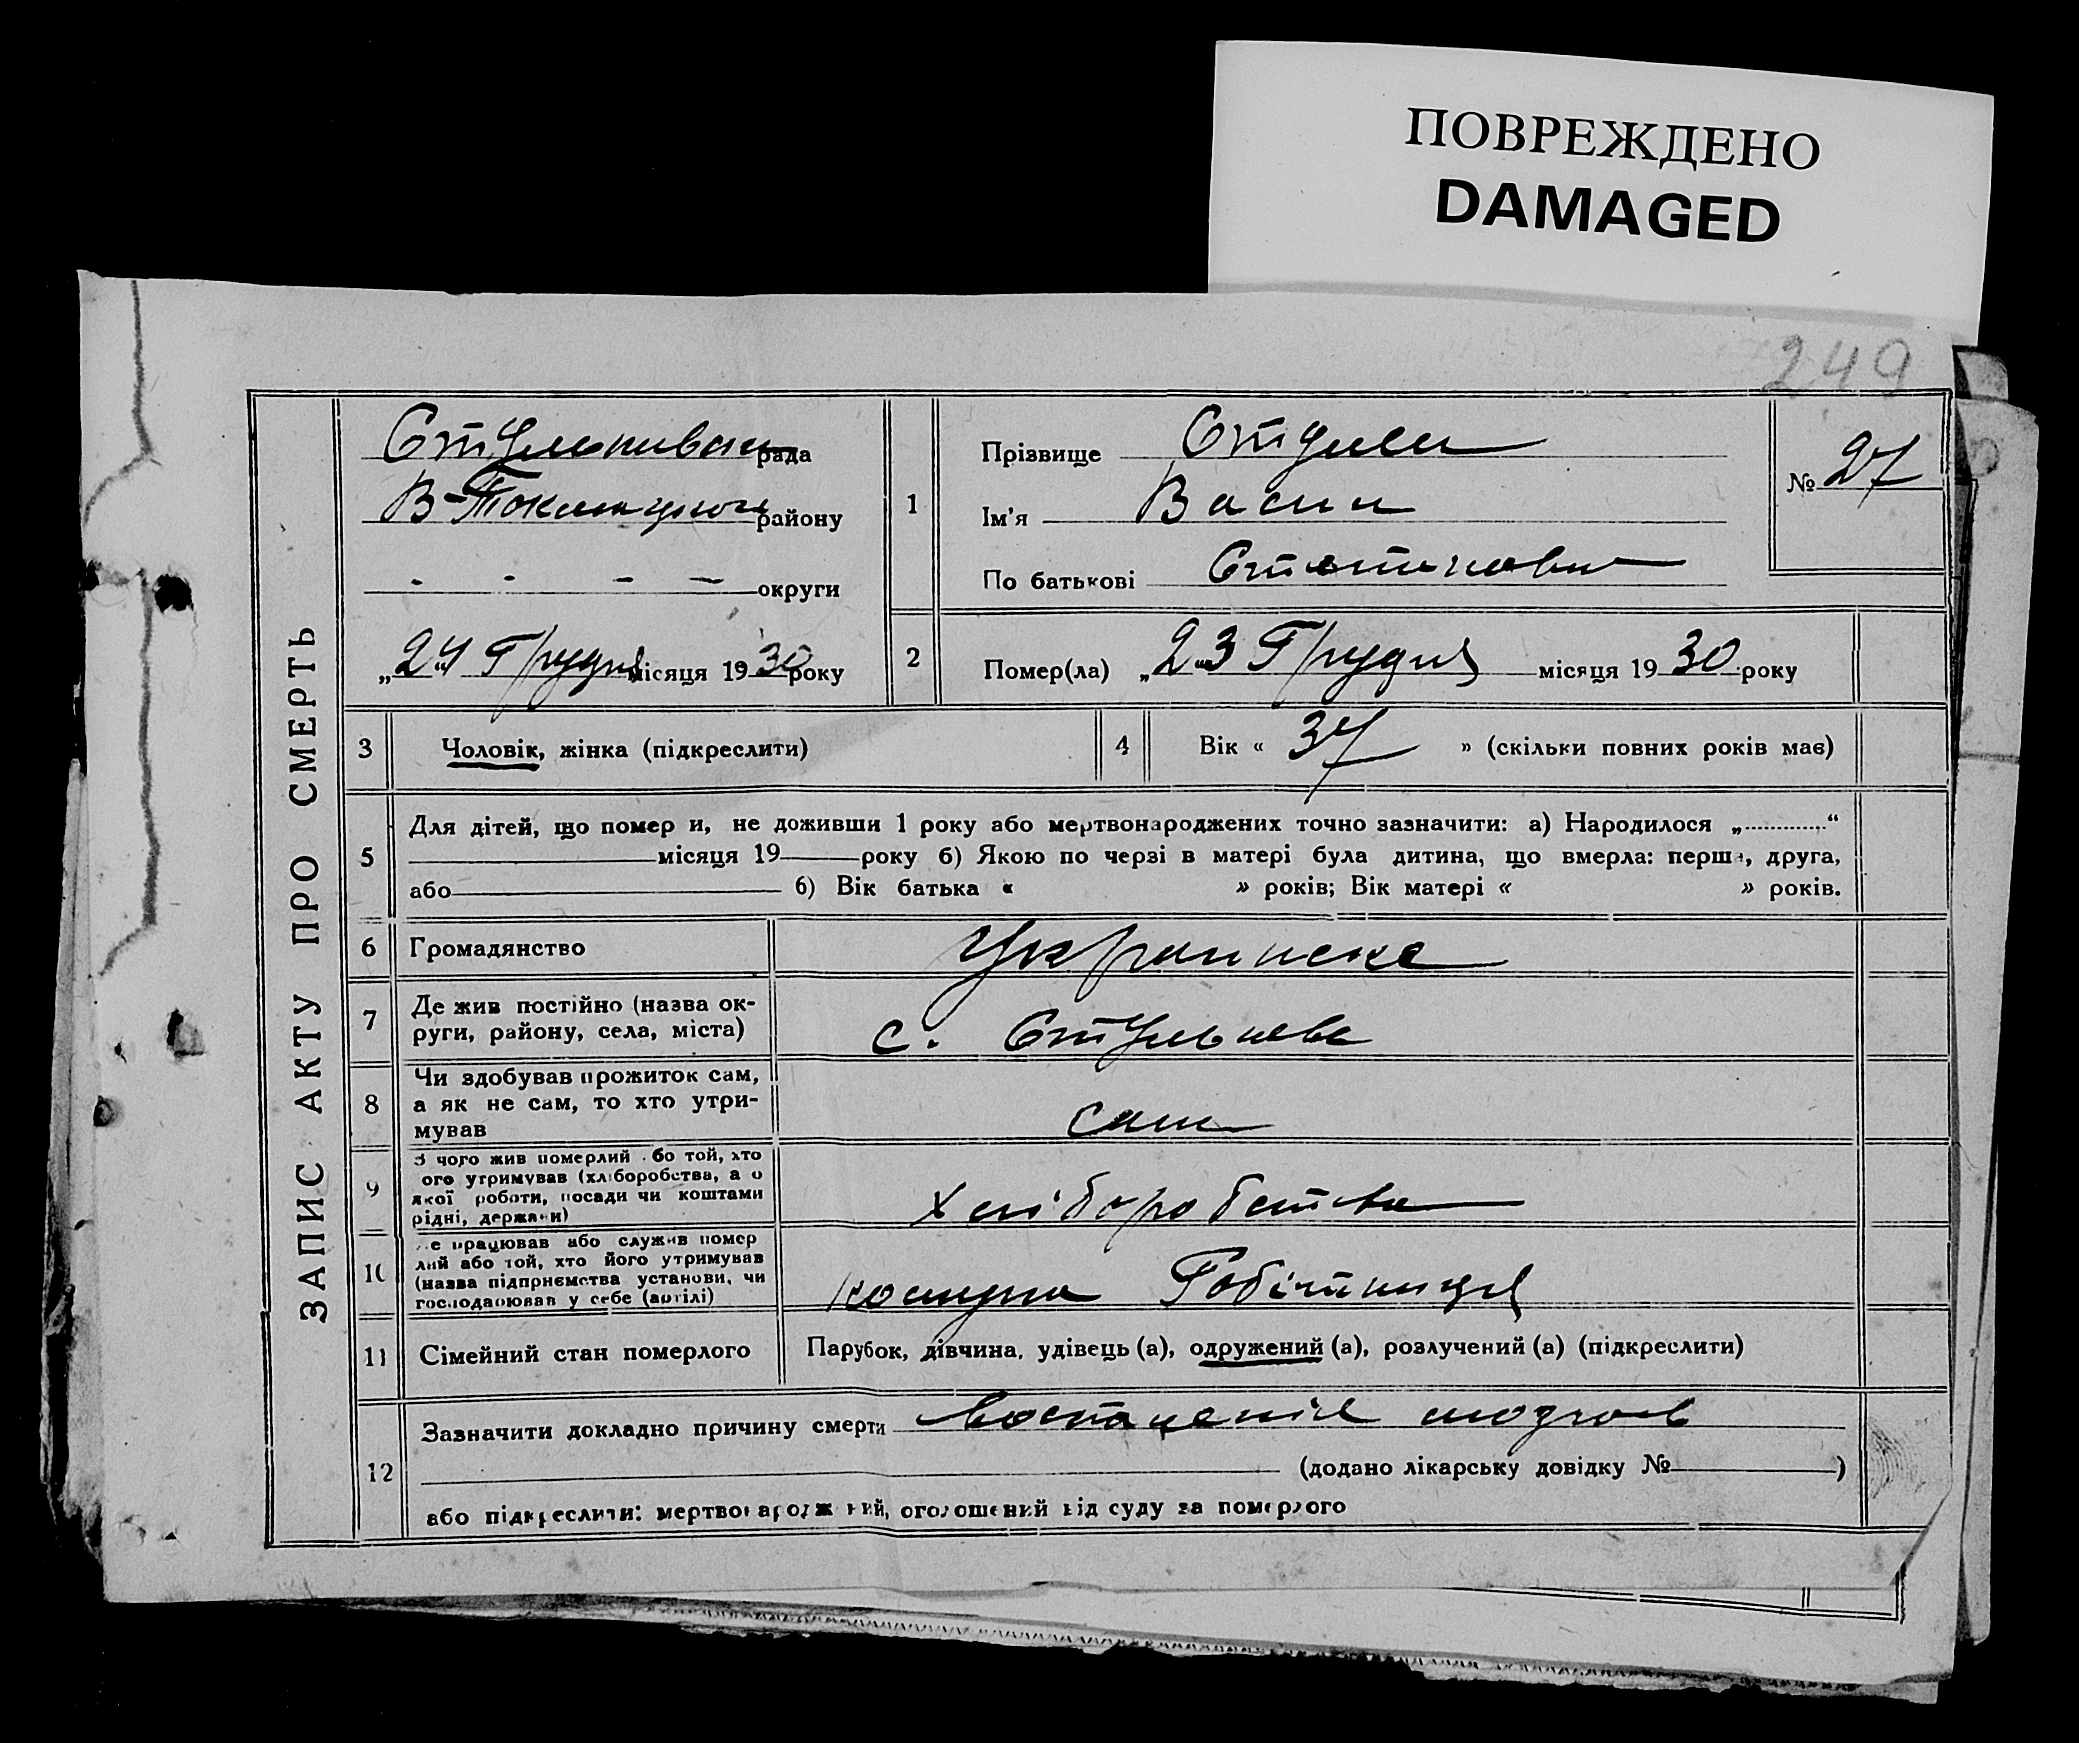 ПОВРЕЖДЕНО
DAMAGED
249
ЗАПИС АКТУ ПРО СМЕРТЬ
рада
В-Токмацького району
- - - - округи
„24 Грудня місяця 1930 року
1
Прізвище
Ім'я Васил
По батькові
№ 27
2
Помер(ла) „23 Грудня місяця 1930 року
3 Чоловік, жінка (підкреслити)
4 Вік « 37 » (скільки повних років має)
5 Для дітей, що помер и, не доживши 1 року або мертвонароджених точно зазначити: а) Народилося „............“
місяця 19 року б) Якою по черзі в матері була дитина, що вмерла: перша, друга,
або б) Вік батька « » років; Вік матері « » років.
6 Громадянство Украинске
7 Де жив постійно (назва ок-
руги, району, села, міста) с. Стульнева
8 Чи здобував прожиток сам,
а як не сам, то хто утри-
мував сам
9 З чого жив померлий або той, хто
ого утримував (хліборобства, а о
якої роботи, посади чи коштами
рідні, держави) хліборобства
10 Де працював або служив помер
лий або той, хто його утримував
(назва підприємства установи, чи
господарював у себе (артілі) комуна Робітниця
11 Сімейний стан померлого Парубок, дівчина, удівець (а), одружений (а), розлучений (а) (підкреслити)
12 Зазначити докладно причину смерти
(додано лікарську довідку № )
або підкреслити: мертвонароджений, оголошений від суду за померлого